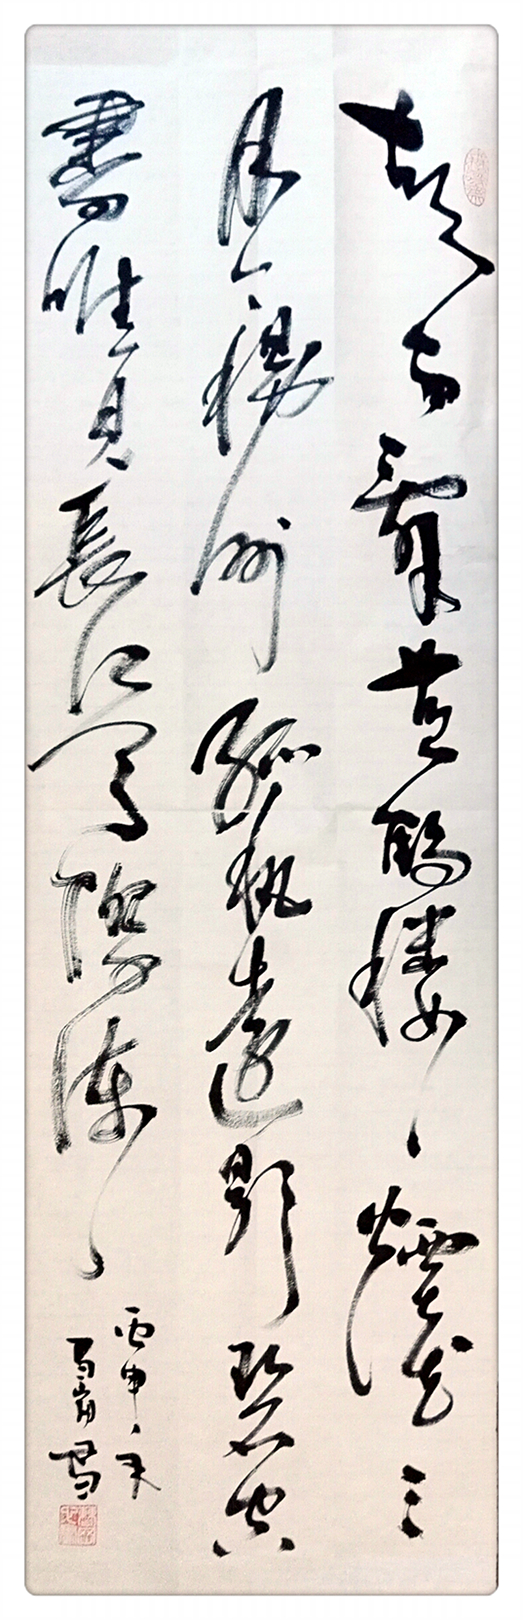 故人西辭黃鶴樓煙花三
月下揚州孤帆遠影碧空
盡唯見長江天際流
丙申
書